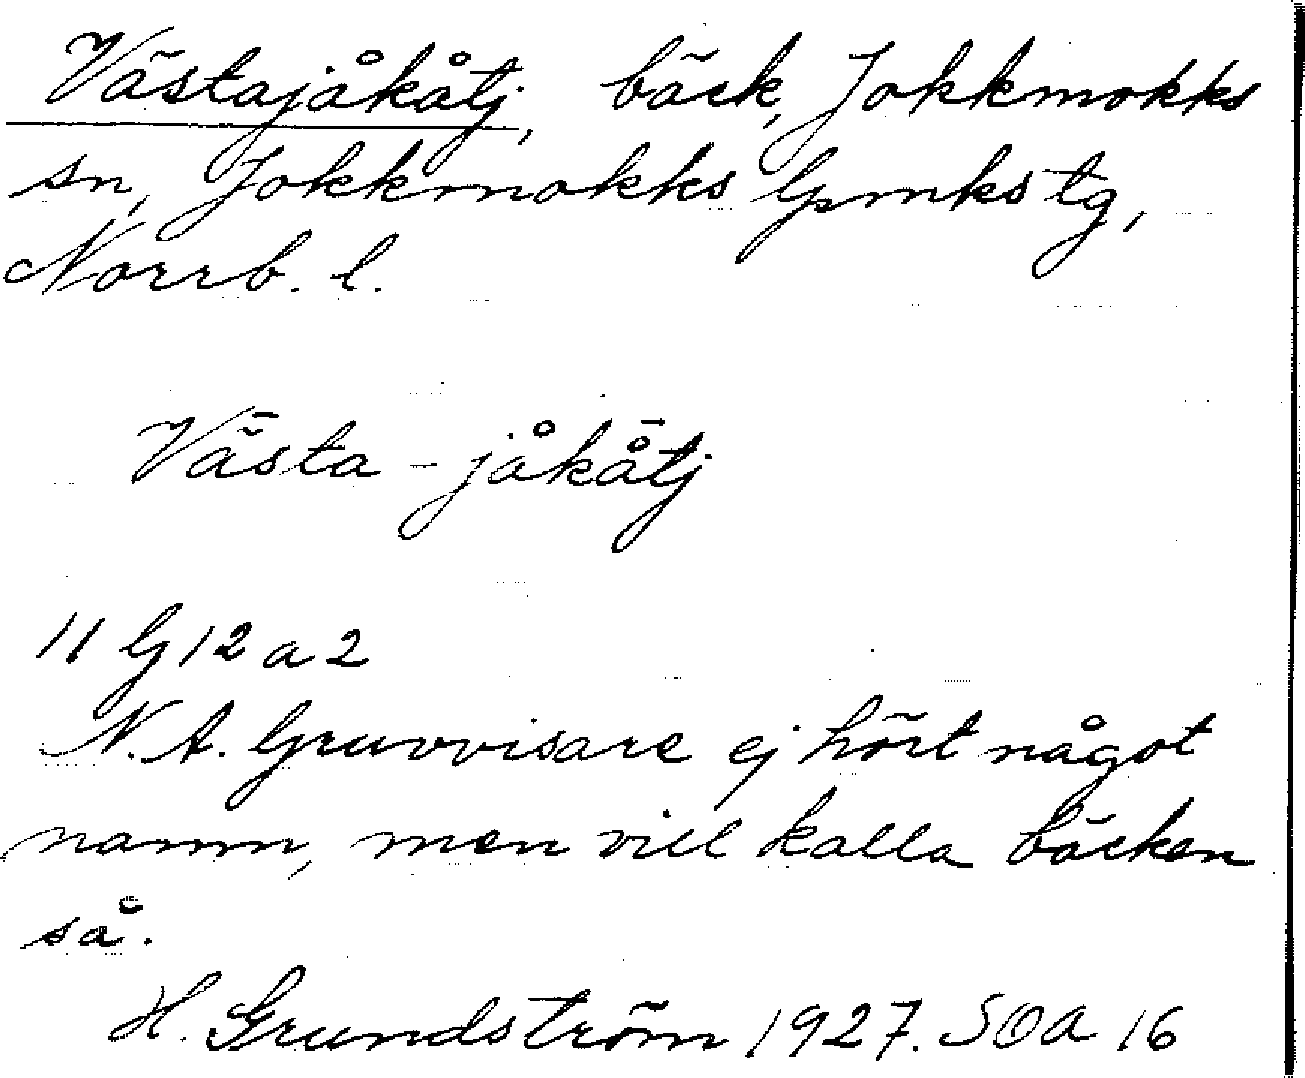 Västajåkåtj, bäck, Jokkmokks
sn, Jokkmokks lpmkstg,
Norrb. l.
Västa - jåkå̄tj
11 G 12 a 2
N. A. Gruvvisare ej hört något
namn, men vill kalla bäcken
så.
H. Grundström 1927. SOA 16